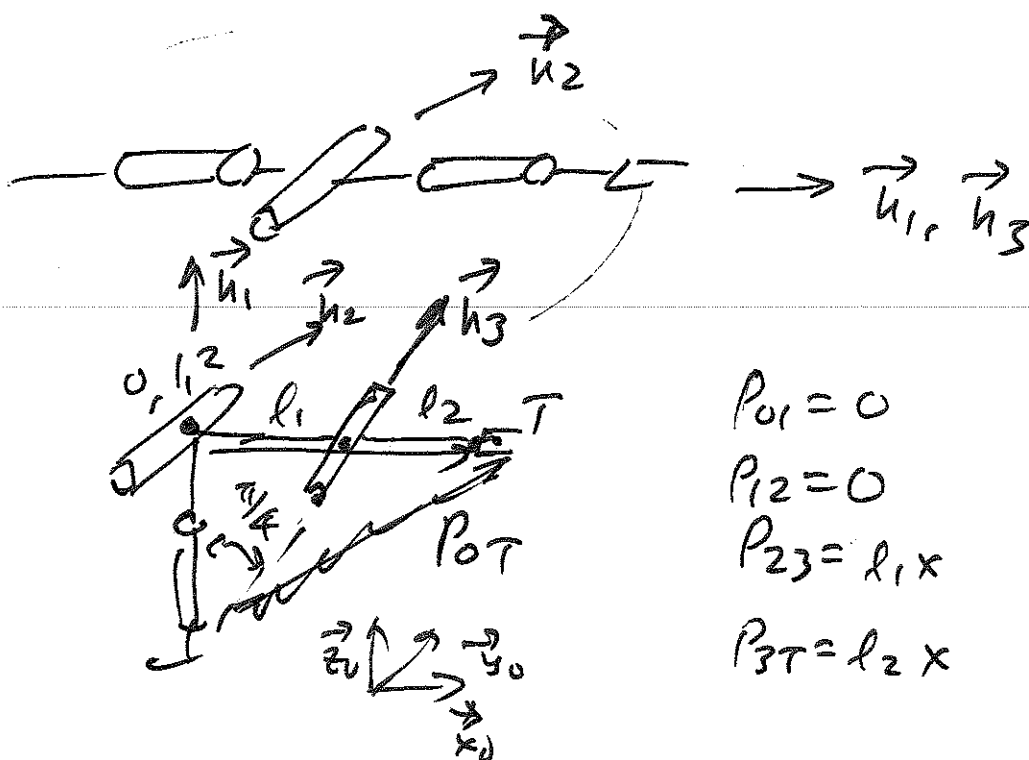 h⃗2
h⃗1, h⃗3
h⃗1
h⃗2
h⃗3
0, 1, 2
l1
l2
T
π/4
P0T
z⃗0
y⃗0
x⃗0
P01 = 0
P12 = 0
P23 = l1 x
P3T = l2 x